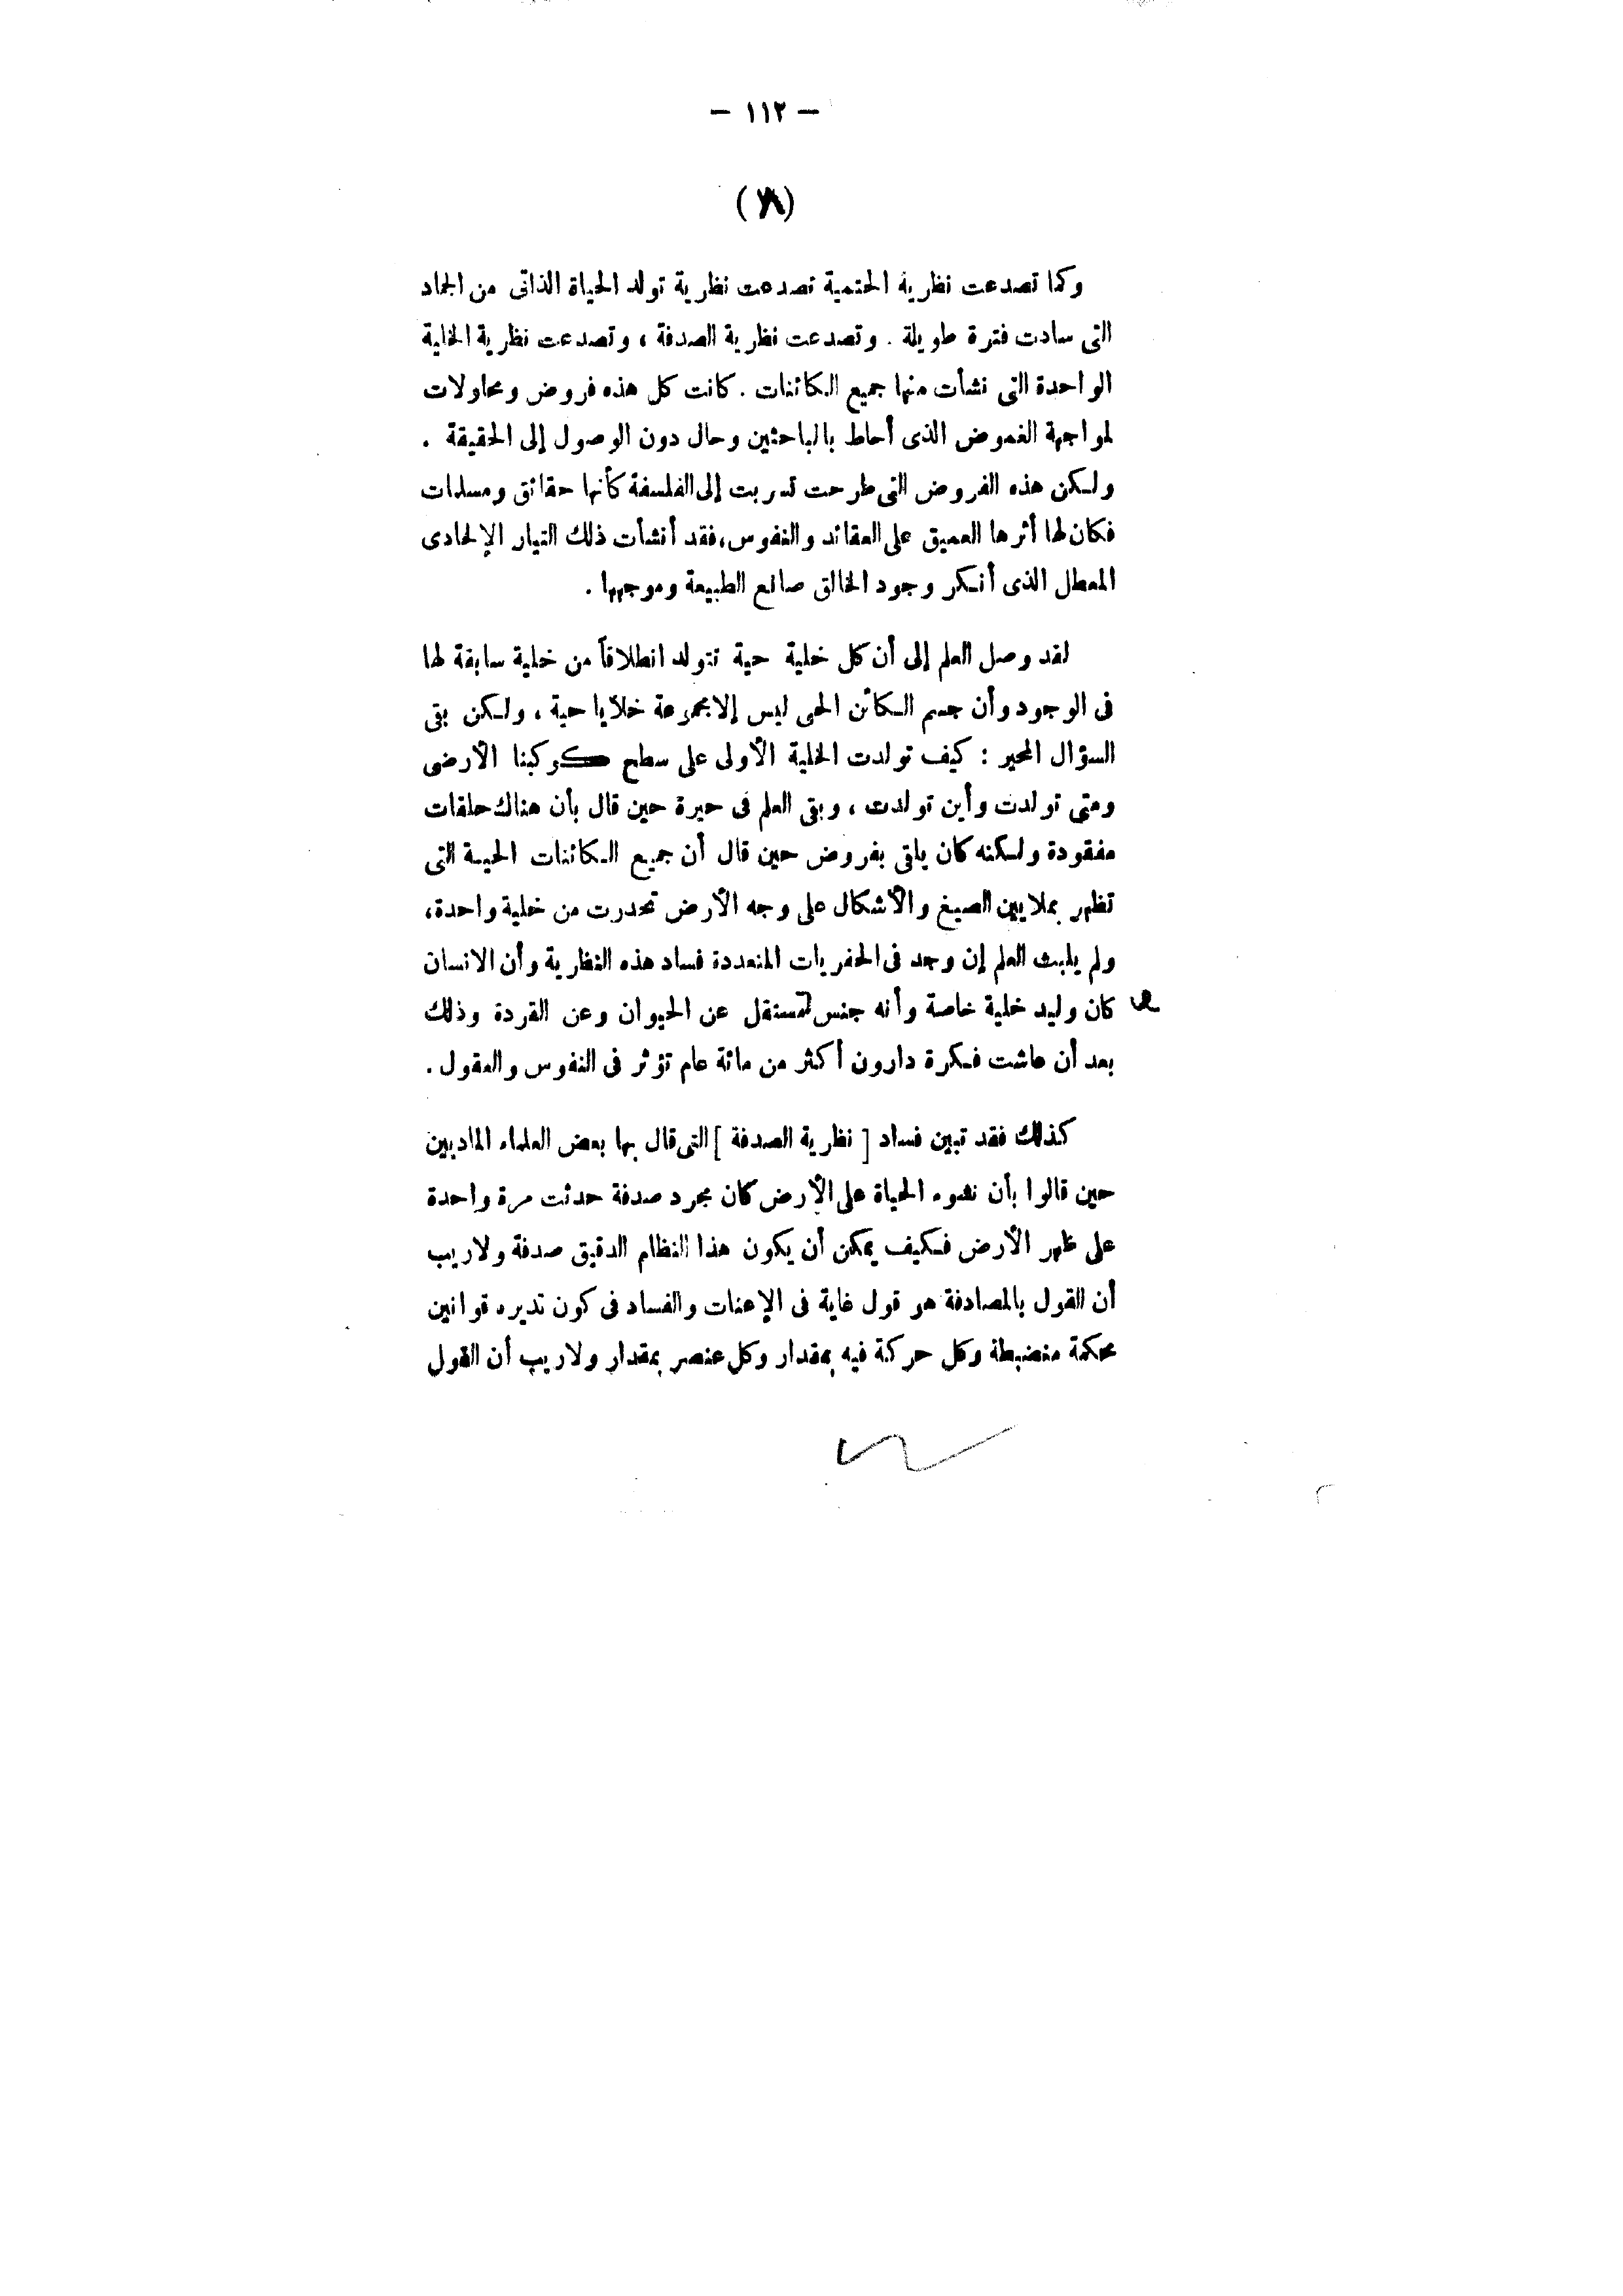 — ١١٢ —
وكما تصدعت نظرية الحتمية تصدعت نظرية تولد الحياة الذاتى من الجماد
التى سادت فترة طويلة . وتصدعت نظرية الصدفة ، وتصدعت نظرية الخلية
الواحدة التى نشأت منها جميع الكائنات . كانت كل هذه فروض ومحاولات
لمواجهة الغموض الذى أحاط بالباحثين وحال دون الوصول إلى الحقيقة .
ولكن هذه الفروض التى طرحت تسربت إلى الفلسفة كأنها حقائق ومسلمات
فكان لها أثرها العميق على العقائد والنفوس، فقد أنشأت ذلك التيار الإلحادى
المعطل الذى أنكر وجود الخالق صانع الطبيعة وموجهها .
لقد وصل العلم إلى أن كل خلية حية تتولد انطلاقاً من خلية سابقة لها
فى الوجود وأن جسم الكائن الحى ليس إلا مجموعة خلايا حية ، ولكن بقى
السؤال المحير : كيف تولدت الخلية الأولى على سطح كوكبنا الأرضى
ومتى تولدت وأين تولدت ، وبقى العلم فى حيرة حين قال بأن هناك حلقات
مفقودة ولكنه كان يأتى بفروض حين قال أن جميع الكائنات الحية التى
تظهر بملايين الصيغ والأشكال على وجه الأرض تحدرت من خلية واحدة،
ولم يلبث العلم إن وجد فى الحفريات المتعددة فساد هذه النظرية وأن الانسان
كان وليد خلية خاصة وأنه جنس مستقل عن الحيوان وعن القردة وذلك
بعد أن عاشت فكرة دارون أكثر من مائة عام تؤثر فى النفوس والعقول .
كذلك فقد تبين فساد [ نظرية الصدفة ] التى قال بها بعض العلماء الماديين
حين قالوا بأن نشوء الحياة على الأرض كان مجرد صدفة حدثت مرة واحدة
على ظهر الأرض فكيف يمكن أن يكون هذا النظام الدقيق صدفة ولاريب
أن القول بالمصادفة هو قول غاية فى الإعنات والفساد فى كون تديره قوانين
محكمة منضبطة وكل حركة فيه بمقدار وكل عنصر بمقدار ولاريب أن القول